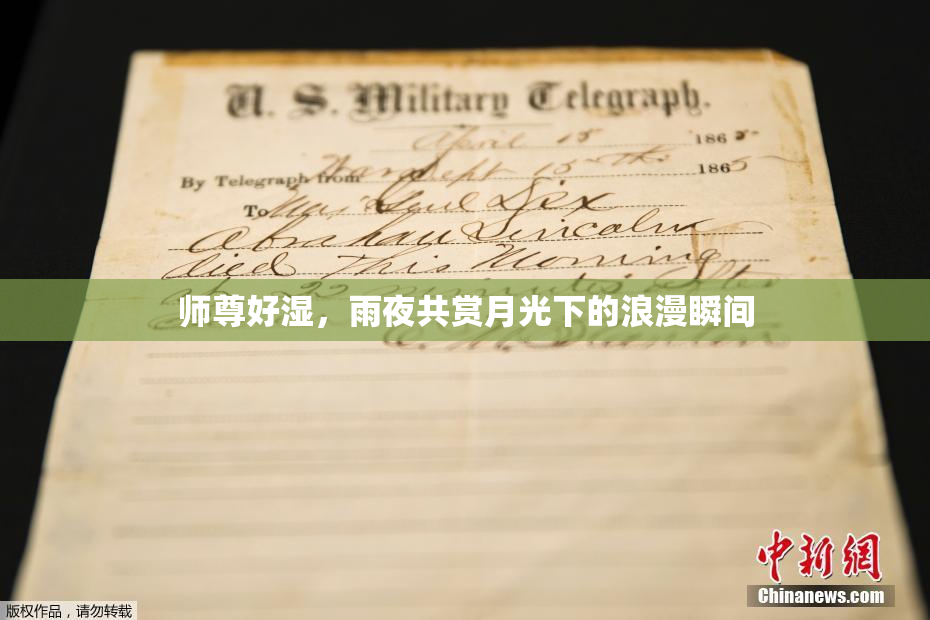 U. S. Military Telegraph.
April 15 1865
By Telegraph from War Dept 15th 1865
To Maj Genl Dix
Abraham Lincoln
died This Morning
at 22 minutes after
师尊好湿，雨夜共赏月光下的浪漫瞬间
E. M. Stanton
中新网
Chinanews.com
版权作品，请勿转载